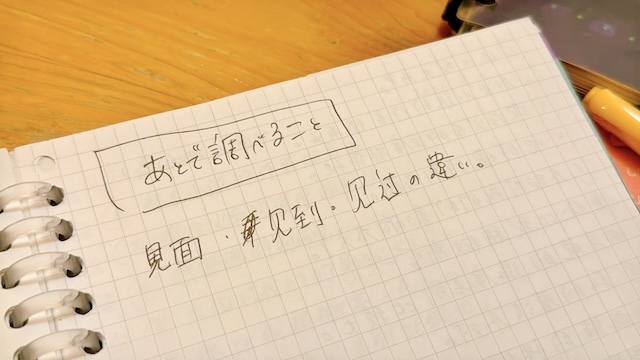 あとで調べること
見面・见到・见过の違い。